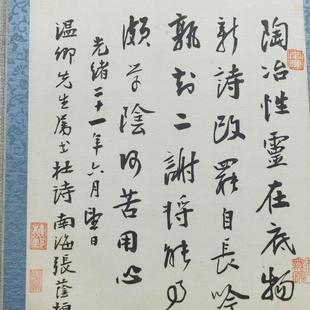 陶冶性靈在底物
新詩改罷自長吟
熟知二謝將能事
頗學陰何苦用心
光緒二十一年六月望日
溫卿先生屬書杜詩 南海張蔭桓